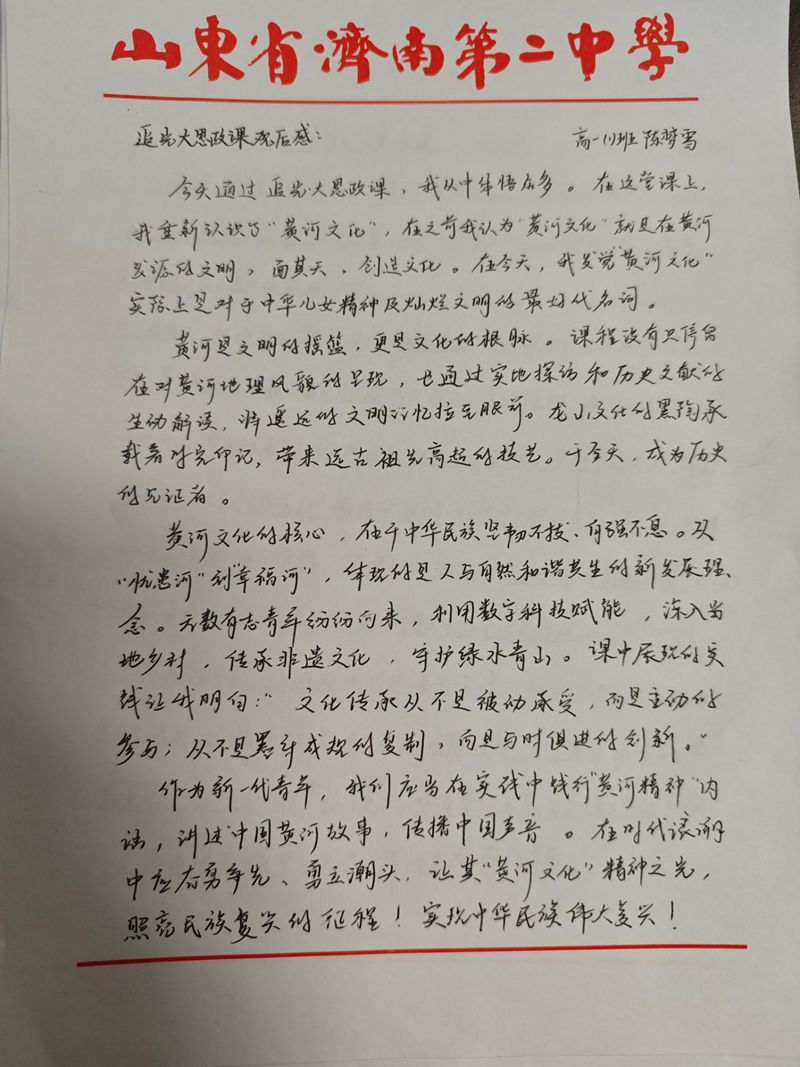 山東省濟南第二中學
追光大思政课观后感：
高一(1)班 陈梦雪
今天通过追光大思政课，我从中体悟众多。在这堂课上，
我重新认识了“黄河文化”，在之前我认为“黄河文化”就是在黄河
发源的文明、面其天、创造文化。在今天，我发觉“黄河文化”
实际上是对于中华儿女精神及灿烂文明的最好代名词。
黄河是文明的摇篮，更是文化的根脉。课程没有只停留
在对黄河地理风貌的呈现，也通过实地探访和历史文献的
生动解读，将遥远的文明记忆拉至眼前。龙山文化的黑陶承
载着时光印记，带来远古祖先高超的技艺。于今天，成为历史
的见证者。
黄河文化的核心，在于中华民族坚韧不拔、自强不息。从
“忧患河”到“幸福河”，体现的是人与自然和谐共生的新发展理
念。无数有志青年纷纷向来，利用数字科技赋能，深入当
地乡村，传承非遗文化，守护绿水青山。课中展现的实
践让我明白：“文化传承从不是被动承受，而是主动的
参与；从不是墨守成规的复制，而是与时俱进的创新。”
作为新一代青年，我们应当在实践中践行“黄河精神”内
涵，讲述中国黄河故事，传播中国声音。在时代浪潮
中应奋勇争先、勇立潮头，让其“黄河文化”精神之光，
照亮民族复兴的征程！实现中华民族伟大复兴！